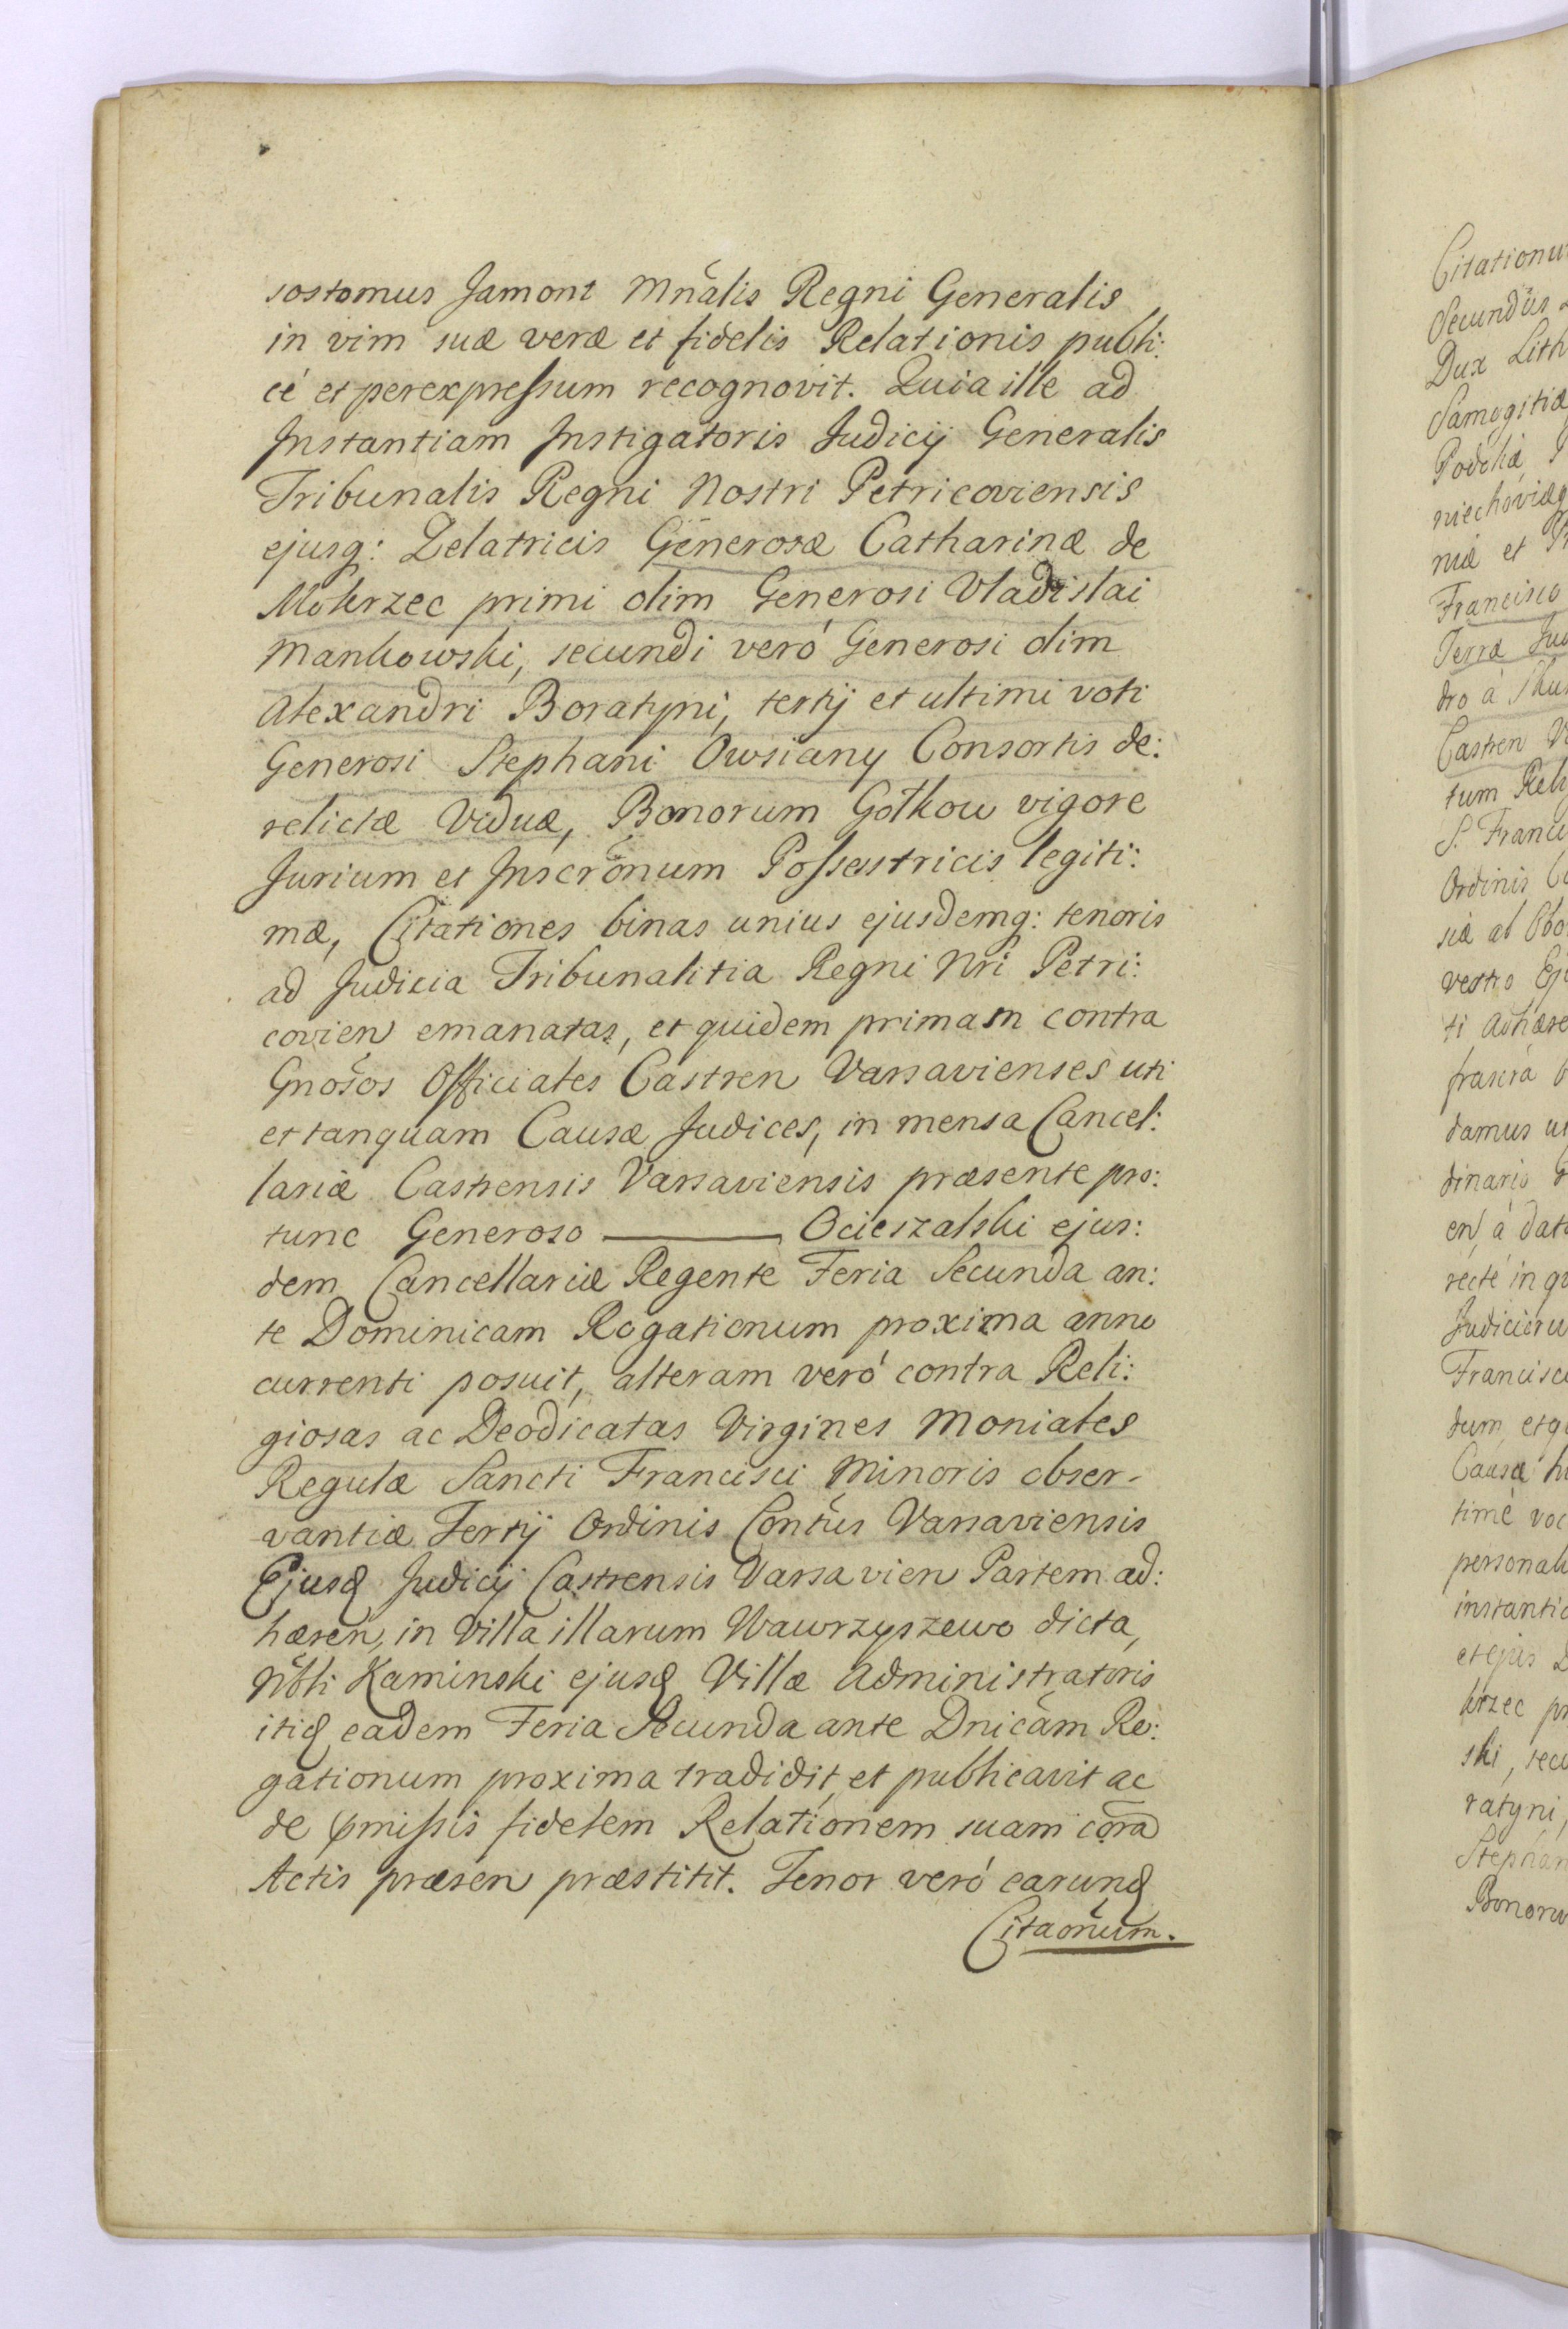 sostomus Jamont Mnãlis Regni Generalis
in vim suæ veræ et fidelis Relationis publi:
cé et perexpressum recognovit. Quia ille ad
Instantiam Instigatoris Judicij Generalis
Tribunalis Regni Nostri Petricoviensis
ejusq: Zelatricis Generosæ Catharinæ de
Mokrzec primi olim Generosi Vladislai
Mankowski, secundi veró Generosi olim
Alexandri Boratyni, tertij et ultimi voti
Generosi Stephani Owsiany Consortis de:
relictæ Viduæ, Bonorum Gołkow vigore
Jurium et Inscrõnum Possesstricis legiti:
mæ, Citationes binas unius ejusdemq: tenoris
ad Judicia Tribunalitia Regni Nri Petri:
covien emanatas, et quidem primam contra
Gnosos Officiales Castren Varsavienses uti
et tanquam Causæ Judices, in mensa Cancel:
lariæ Castrensis Varsaviensis præsente pro:
tunc Generoso ——— Ocieszalski ejus:
dem Cancellariæ Regente Feria Secunda an:
te Dominicam Rogationum proxima anno
currenti posuit, alteram veró contra Reli:
giosas ac Deodicatas Virgines Moniales
Regulæ Sancti Francisci Minoris obser-
vantiæ Tertij Ordinis Contûs Varsaviensis
Ejusq Judicij Castrensis Varsavien Partem ad:
hæren, in Villa illarum Wawrzyszewo dicta,
Nbli Kaminski ejusq Villæ Administratoris
itiq eadem Feria Secunda ante Dnicãm Ro:
gationum proxima tradidit, et publicavit ac
de pmissis fidelem Relationem suam corã
Actis præsen præstitit. Tenor veró earunq
Citaõnum.
Citationu
Secundûs
Dux Lith
Samogitiæ
Podoliæ
niechoviæq
niæ et
Francisco
Terræ Jud
dro à
Castren
tum Reli
S. Franci
Ordinis
siæ al
vestro
ti adhære
damus ut
dinario
en, á dat
recté in qu
Judicioru
Francisca
dum, et q
Causæ
timé voc
personali
instantia
et ejus
krzec pr
ski, secu
ratyni,
Stephan
Bonoru